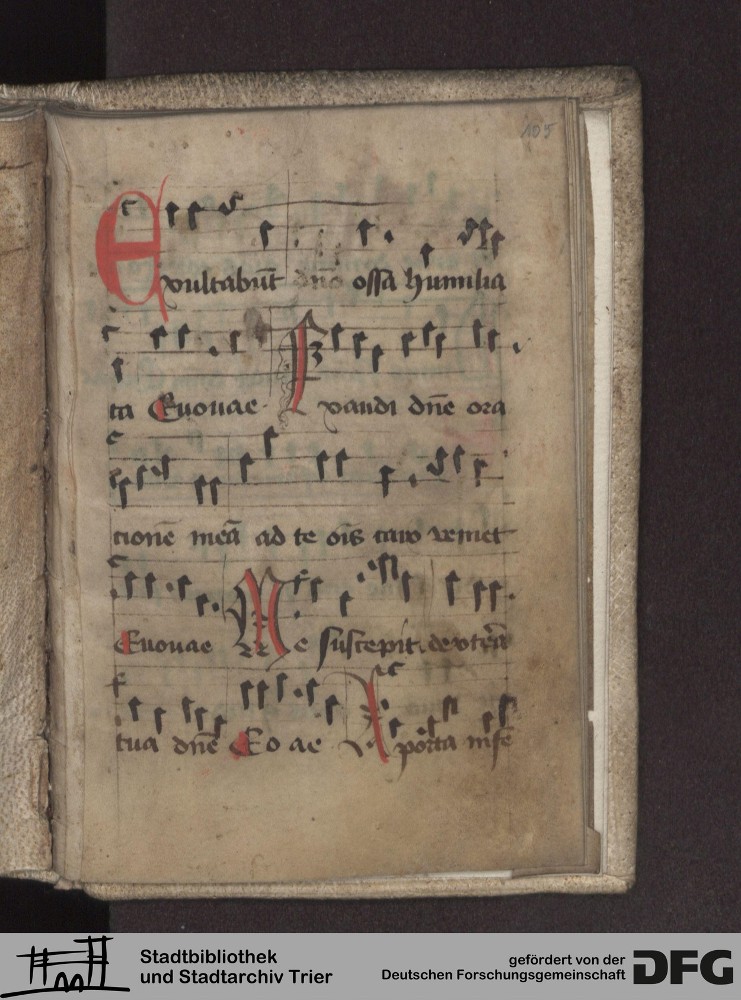 105
Exultabūt dn̄o ossa humilia
ta Euouae Exaudi dn̄e ora
cionē meā ad te oīs caro veniet
Euouae Me suscepit dextera
tua dn̄e Eo ae A porta infe
Stadtbibliothek
und Stadtarchiv Trier
gefördert von der
Deutschen Forschungsgemeinschaft
DFG